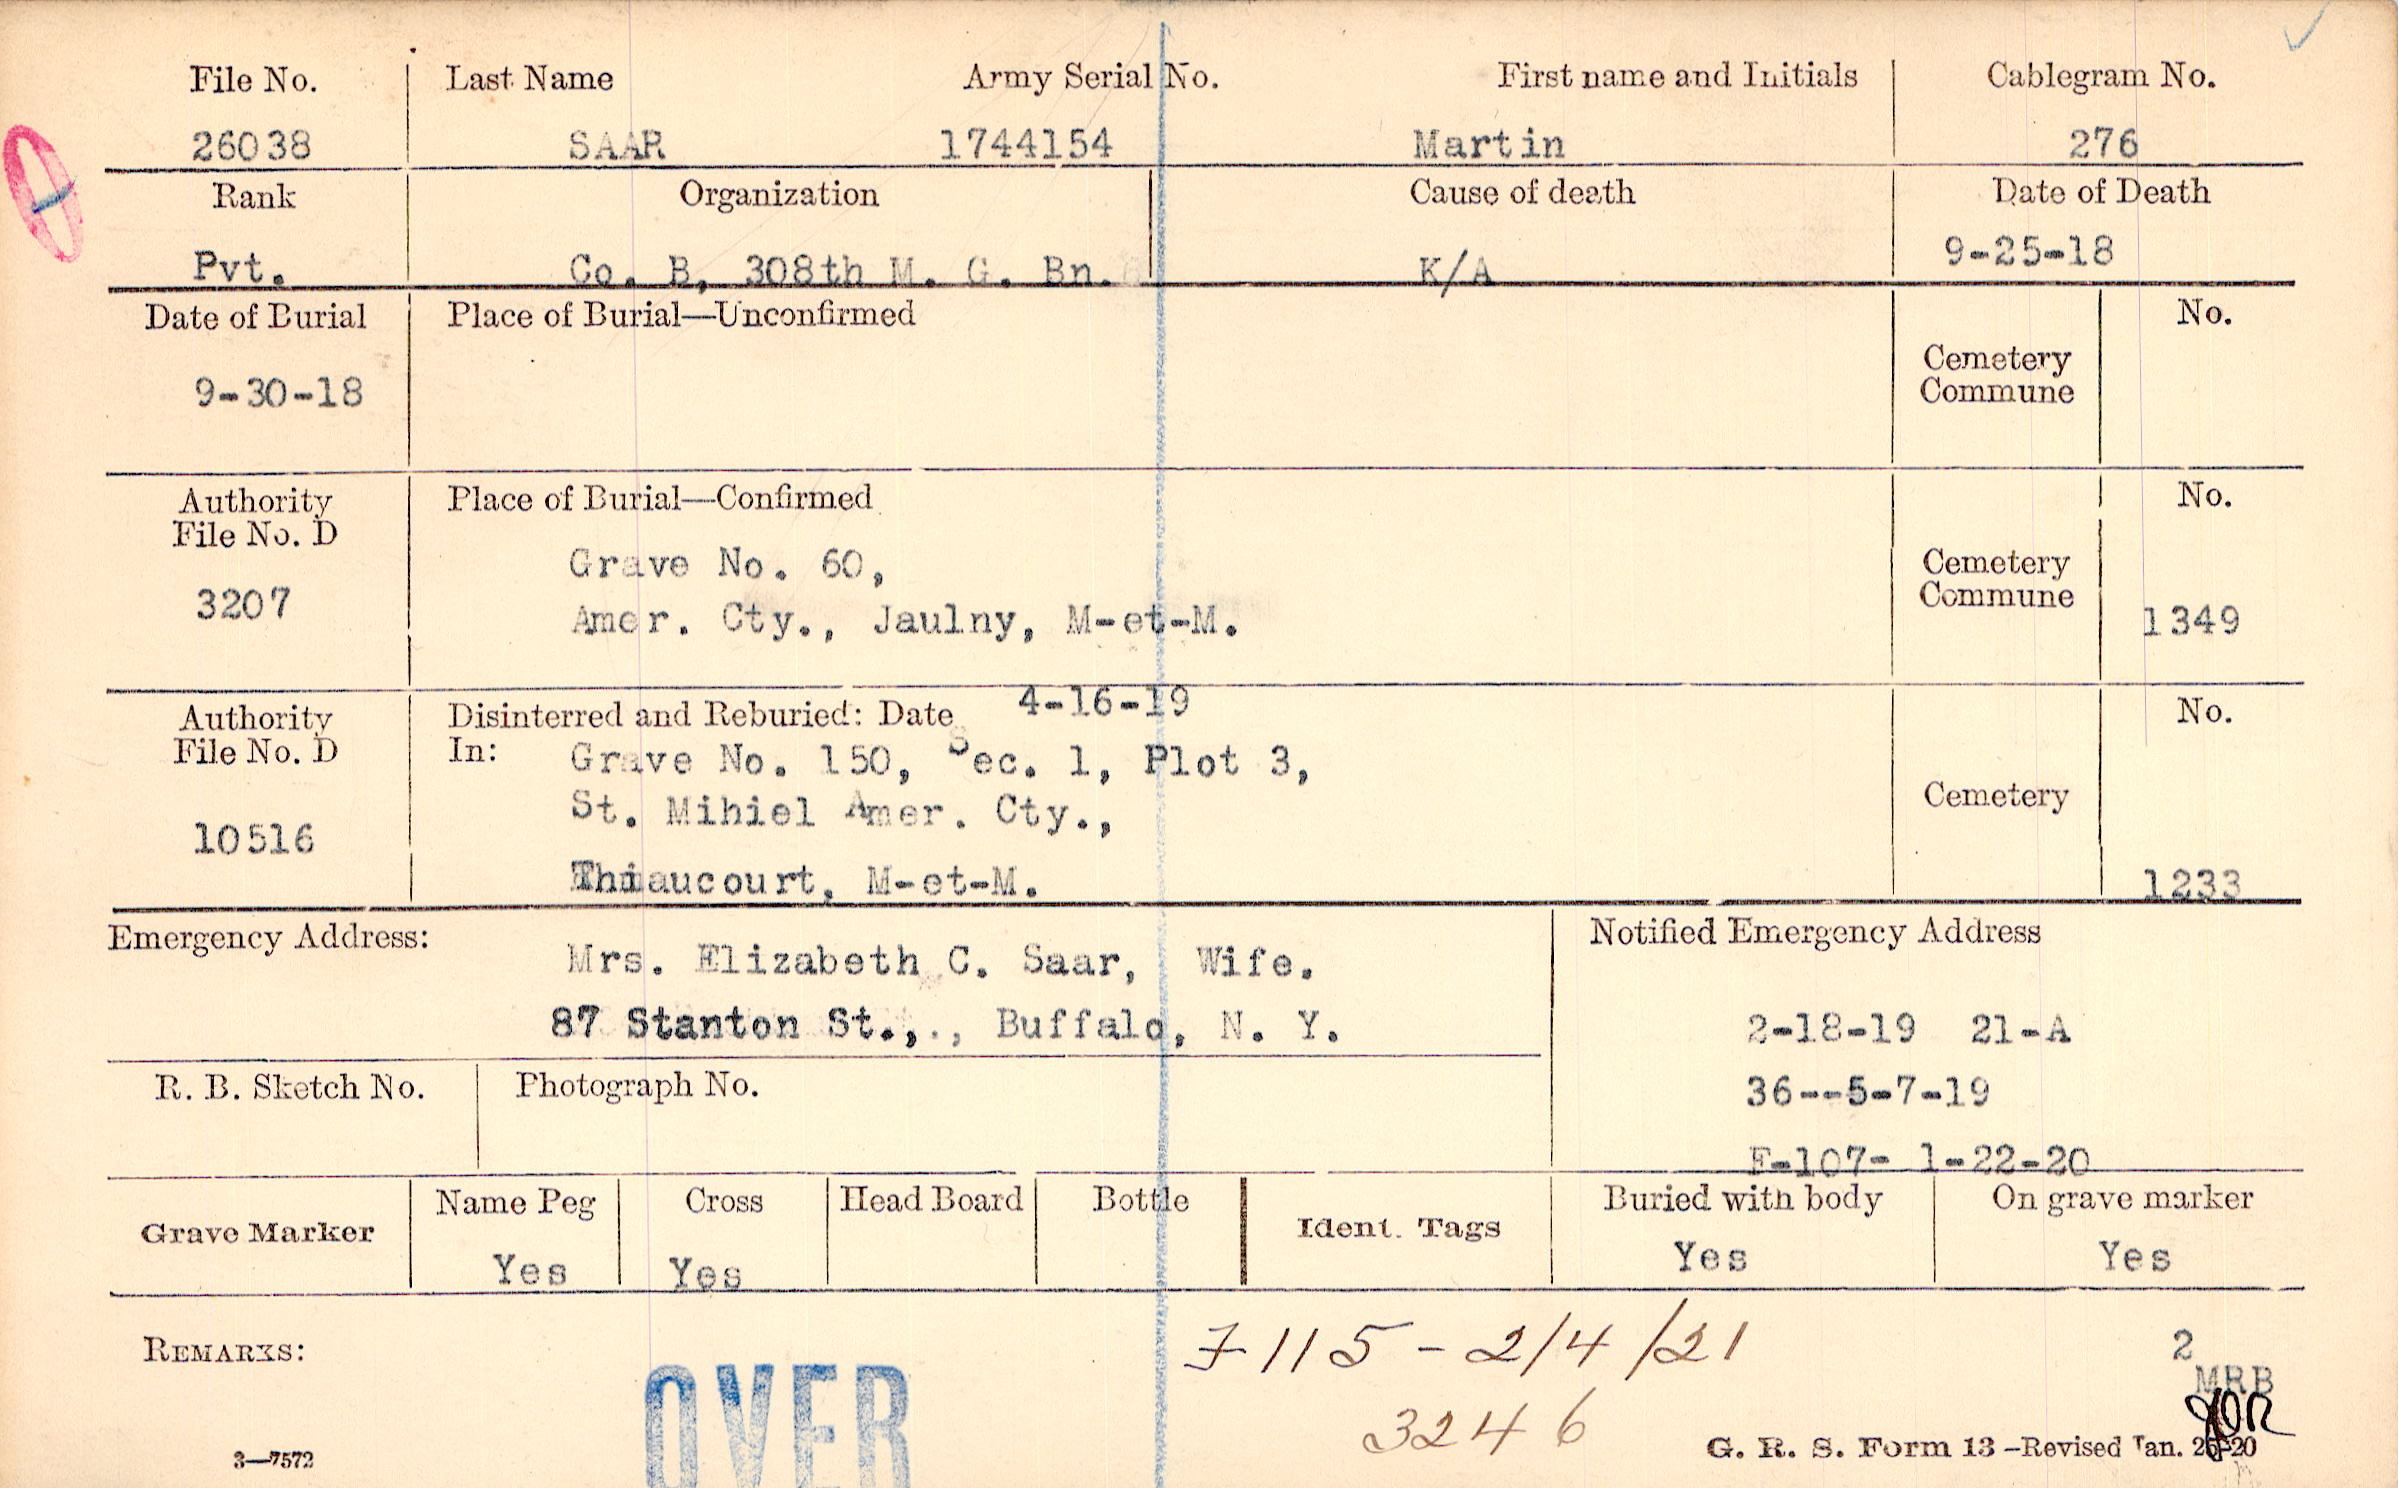 File No. Last Name Army Serial No. First name and Initials Cablegram No.
26038 SAAR 1744154 Martin 276
Rank Organization Cause of death Date of Death
Pvt. Co. B, 308th M. G. Bn. K/A 9-25-18
Date of Burial Place of Burial—Unconfirmed No.
9-30-18
Cemetery
Commune
Authority Place of Burial—Confirmed No.
File No. D
3207
Grave No. 60,
Amer. Cty., Jaulny, M-et-M.
Cemetery
Commune
1349
Authority Disinterred and Reburied: Date 4-16-19 No.
File No. D In: Grave No. 150, Sec. 1, Plot 3,
St. Mihiel Amer. Cty.,
10516
Thiaucourt, M-et-M.
Cemetery
1233
Emergency Address: Mrs. Elizabeth C. Saar, Wife.
87 Stanton St.,., Buffalo, N. Y.
Notified Emergency Address
2-18-19 21-A
36--5-7-19
F-107- 1-22-20
R. B. Sketch No. Photograph No.
Grave Marker Name Peg Cross Head Board Bottle Ident. Tags Buried with body On grave marker
Yes Yes Yes Yes
REMARKS:
F 115 - 2/4/21
3246
OVER
2
MRB
3—7572
G. R. S. Form 13—Revised Jan. 26-20